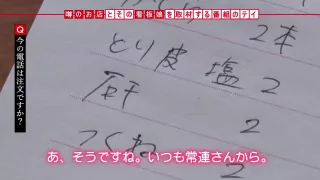 噂のお店とその看板娘を取材する番組のテイ
Q 今の電話は注文ですか?
2本
とり皮 塩 2
肝 2
つくね 2
あ、そうですね。いつも常連さんから。